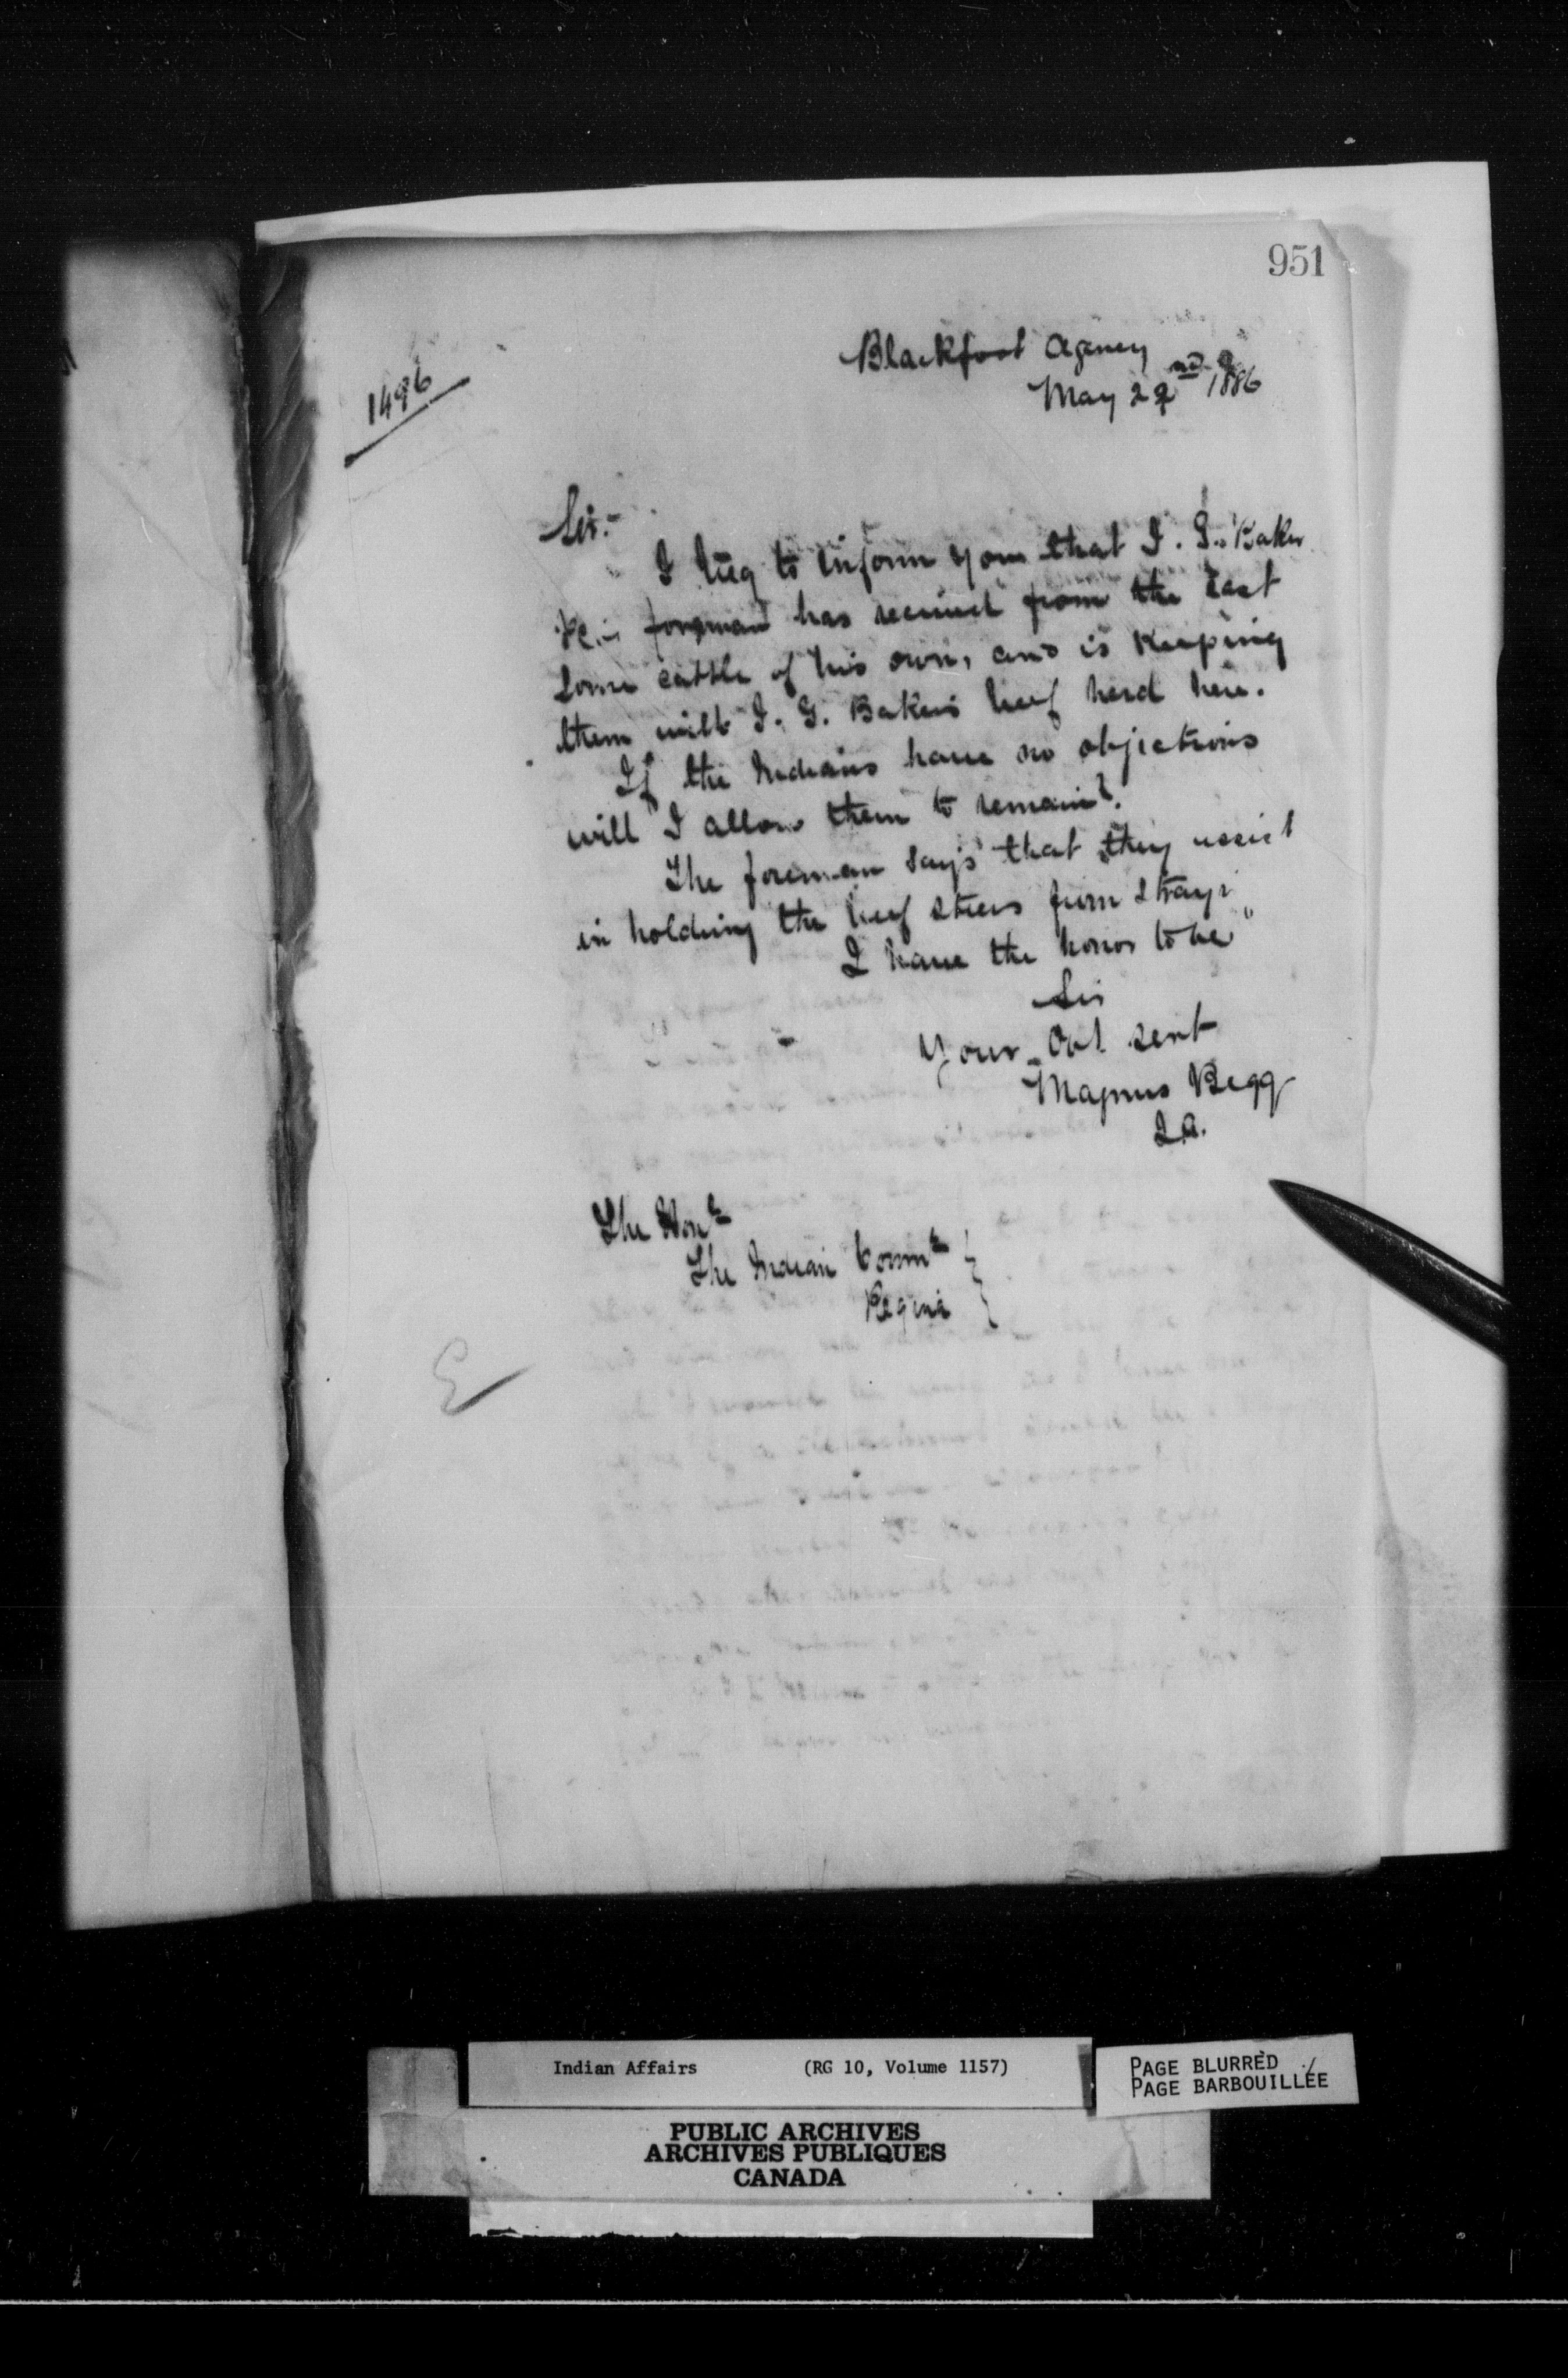 951
1496
Blackfoot Agency
May 22nd 1886
Sir:-
I beg to inform you that I. G. Baker
foreman has received from the East
some cattle of his own, and is keeping
them with I. G. Bakers beef herd here.
If the Indians have no objections
will I allow them to remain?
The foreman says that they assist
in holding the beef steers from straying
I have the honor to be
Sir
Your Obt sert
Magnus Begg
I.A.
The Honle
The Indian Commr
Regina
Indian Affairs (RG 10, Volume 1157)
PAGE BLURRED
PAGE BARBOUILLÉE
PUBLIC ARCHIVES
ARCHIVES PUBLIQUES
CANADA